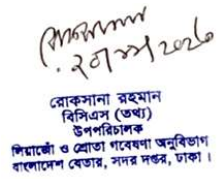 রোকসানা রহমান
বিসিএস (তথ্য)
উপপরিচালক
লিয়াজোঁ ও শ্রোতা গবেষণা অনুবিভাগ
বাংলাদেশ বেতার, সদর দপ্তর, ঢাকা ।